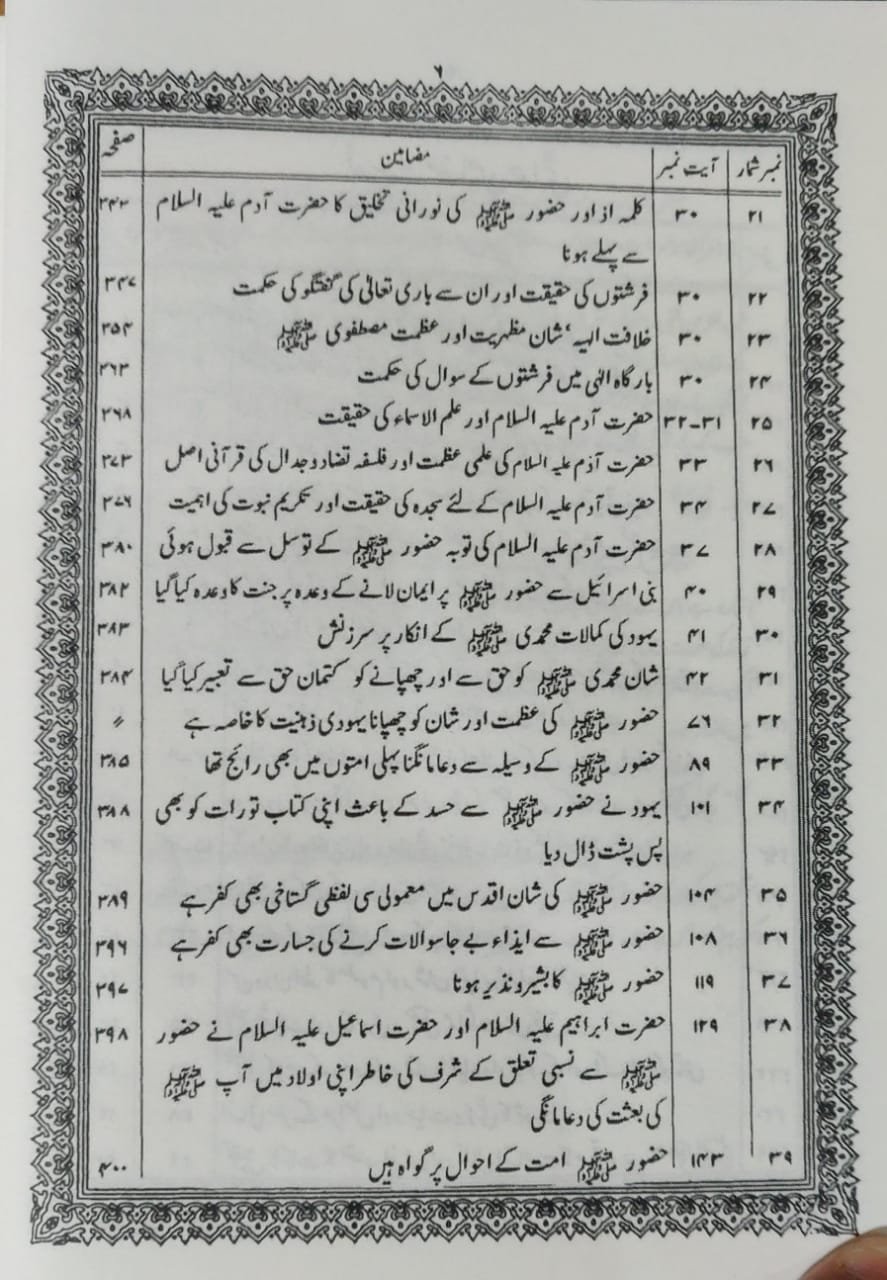 ۶
نمبر شمار آیت نمبر مضامین صفحہ
۲۱ ۳۰ کلمہ اذ اور حضور ﷺ کی نورانی تخلیق کا حضرت آدم علیہ السلام ۳۴۳
سے پہلے ہونا
۲۲ ۳۰ فرشتوں کی حقیقت اور ان سے باری تعالیٰ کی گفتگو کی حکمت ۳۴۷
۲۳ ۳۰ خلافت الہیہ‘ شان مظہریت اور عظمت مصطفوی ﷺ ۳۵۴
۲۴ ۳۰ بارگاہ الٰہی میں فرشتوں کے سوال کی حکمت ۳۶۳
۲۵ ۳۱-۳۲ حضرت آدم علیہ السلام اور علم الاسماء کی حقیقت ۳۶۸
۲۶ ۳۳ حضرت آدم علیہ السلام کی علمی عظمت اور فلسفہ تضاد و جدال کی قرآنی اصل ۳۷۳
۲۷ ۳۴ حضرت آدم علیہ السلام کے لئے سجدہ کی حقیقت اور تکریم نبوت کی اہمیت ۳۷۶
۲۸ ۳۷ حضرت آدم علیہ السلام کی توبہ حضور ﷺ کے توسل سے قبول ہوئی ۳۸۰
۲۹ ۴۰ بنی اسرائیل سے حضور ﷺ پر ایمان لانے کے وعدہ پر جنت کا وعدہ کیا گیا ۳۸۲
۳۰ ۴۱ یہود کی کمالات محمدی ﷺ کے انکار پر سرزنش ۳۸۳
۳۱ ۴۲ شان محمدی ﷺ کو حق سے اور چھپانے کو کتمان حق سے تعبیر کیا گیا ۳۸۴
۳۲ ۷۶ حضور ﷺ کی عظمت اور شان کو چھپانا یہودی ذہنیت کا خاصہ ہے 〃
۳۳ ۸۹ حضور ﷺ کے وسیلہ سے دعا مانگنا پہلی امتوں میں بھی رائج تھا ۳۸۵
۳۴ ۱۰۱ یہود نے حضور ﷺ سے حسد کے باعث اپنی کتاب تورات کو بھی ۳۸۸
پس پشت ڈال دیا
۳۵ ۱۰۴ حضور ﷺ کی شان اقدس میں معمولی سی لفظی گستاخی بھی کفر ہے ۳۸۹
۳۶ ۱۰۸ حضور ﷺ سے ایذاء بے جا سوالات کرنے کی جسارت بھی کفر ہے ۳۹۶
۳۷ ۱۱۹ حضور ﷺ کا بشیر و نذیر ہونا ۳۹۷
۳۸ ۱۲۹ حضرت ابراہیم علیہ السلام اور حضرت اسماعیل علیہ السلام نے حضور ۳۹۸
ﷺ سے نسبی تعلق کے شرف کی خاطر اپنی اولاد میں آپ ﷺ
کی بعثت کی دعا مانگی
۳۹ ۱۴۳ حضور ﷺ امت کے احوال پر گواہ ہیں ۴۰۰